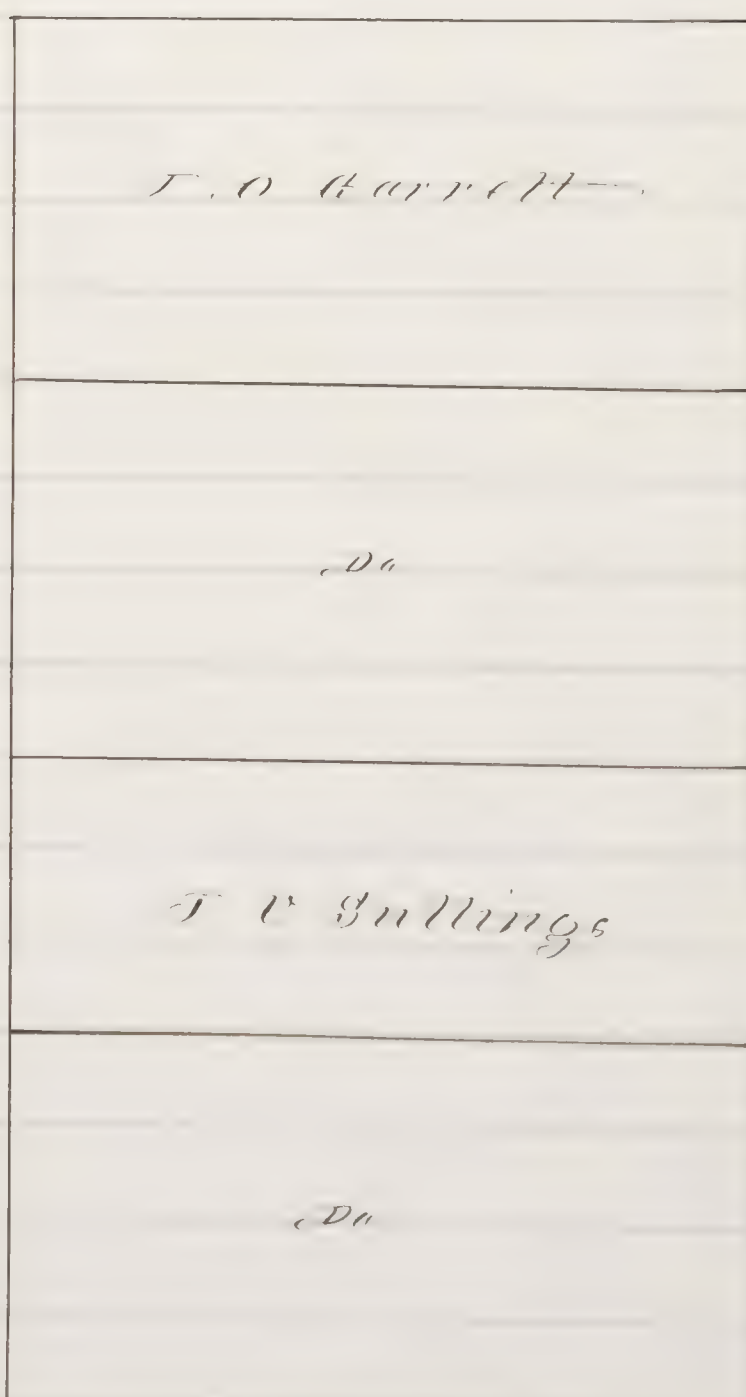 T. O Garrett
Do
T V Gullings
Do